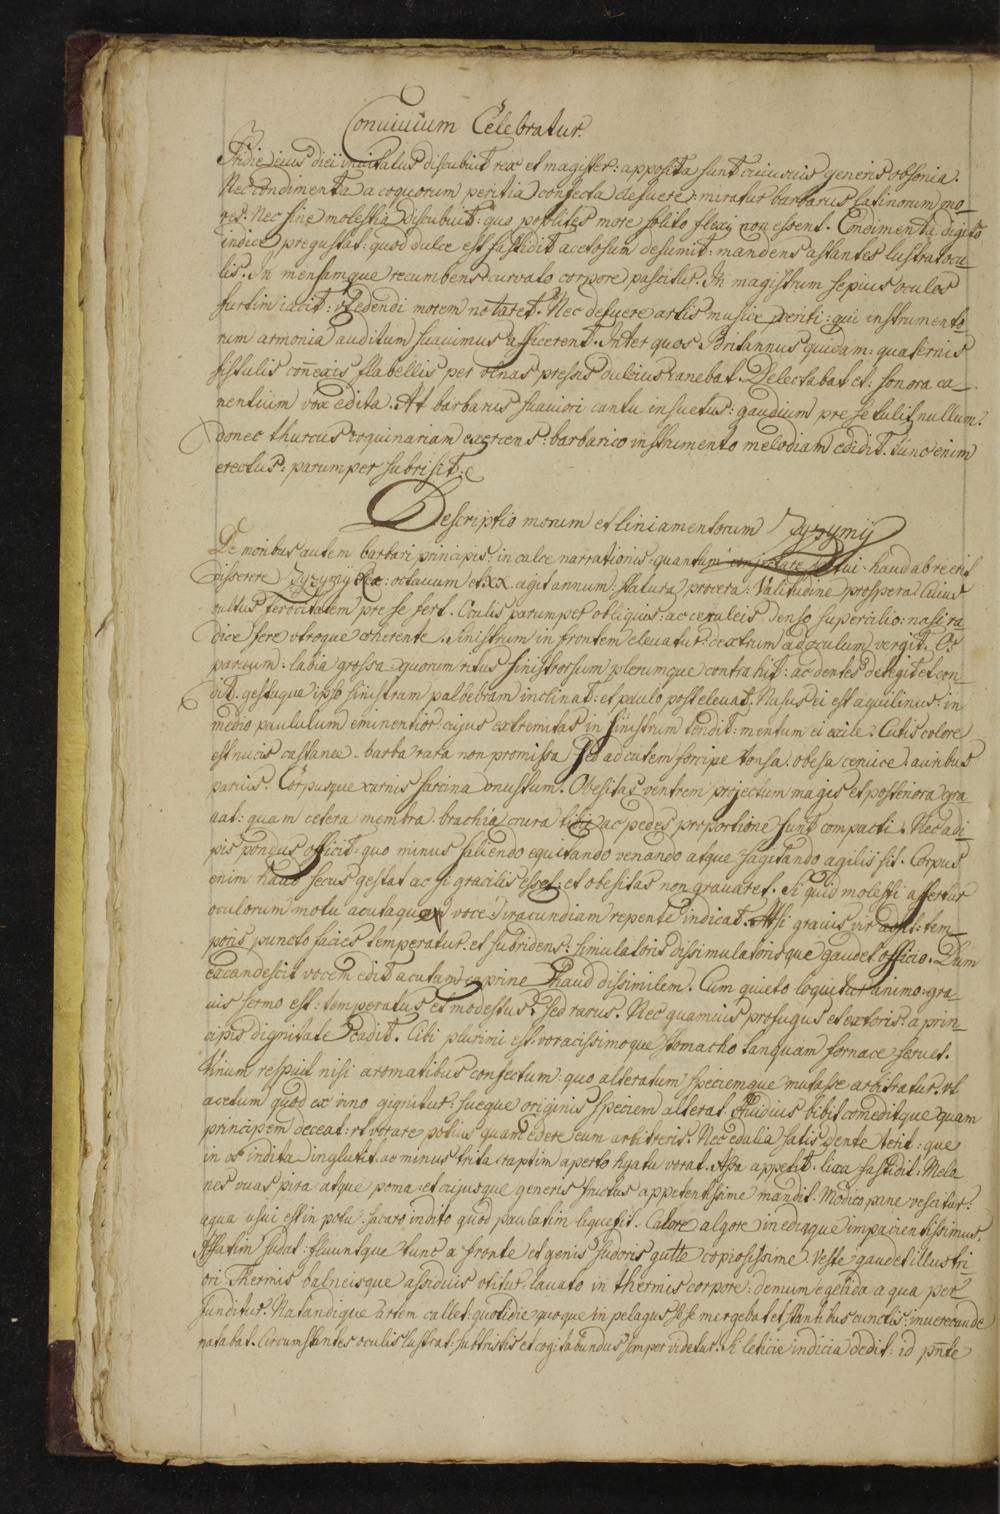 Conuiuium Celebratur
Pridie eius diei inuitatus discubuit rex et magister: apposita sunt cuiusuis generis obsonia.
Nec condimenta a coquorum peritia confecta defuere: miratur barbarus latinorum mo-
res. Nec sine molestia discubuit: quo poplites more solito flexi non essent. Condimenta digito
indice pregustat: quod dulce est fastidit acetosum desumit: mandens astantes lustrat ocu-
lis. In mensamque recumbens curvato corpore pascitur. In magistrum sepius oculos
furtim iacit: vt edendi morem notaret. Nec defuere artis musice periti: qui instrumento-
rum armonia auditum suauimus afficerent. Inter quos Britannus quidam: quaternis
fistulis conexis flabellis per vlnas pressis dulcius canebat. Delectabat et: sonora ca-
nentium vox edita. At barbarus suauiori cantu insuetus: gaudium pre se tulit nullum:
donec thurcus coquinariam exercens: barbarico instrumento melodiam edidit. tunc enim
erectus: parumper subrisit.
Descriptio morum et liniamentorum Zyzymij
De moribus autem barbari principis: in calce narrationis: quantum conjectare potui: haud ab re erit
disserere Zyzymij : octauum et XX. agit annum: statura procera: Valitudine prospera Cuius
vultus ferocitatem pre se fert. Oculis parumper obliquis: ac ceruleis Denso supercilio: nasi ra-
dice fere vtroque coherente. Sinistrum in frontem eleuatur: dextrum ad oculum vergit. Os
paruum: labia grossa: quorum ritus sinistrorsum plerumque contrahit: ac dentes detegit et con-
dit. gestuque ipso sinistram palbebram inclinat: et paulo post eleuat. Nasus ei est aquilinus: in
medio paululum eminentior cujus extremitas in sinistrum tendit: mentum ei exile. Cutis colore
est nucis castanee. barba rara non promissa sed ad cutem forcipe tonsa. obesa ceruice. auribus
paruis. Corpusque carnis sarcina onustum. Obesitas ventrem projectum magis et posteriora gra-
uat: quam cetera membra. brachia crura tibie ac pedes proportione sunt compacti. Nec adi-
pis pondus officit: quo minus saliendo equitando venando atque sagitando agilis sit. Corpus
enim haud secus gestat ac si gracilis esset: et obesitas non grauaret. Si quid molesti affertur
oculorum motu acutaque voce iracundiam repente indicat. At si grauis vir adsit: tem-
poris puncto facies temperatur. et subridens: simulatoris dissimulatorisque gaudet officio. Dum
excandescit vocem edit acutam: caprine haud dissimilem. Cum quieto loquitur animo: gra-
uis sermo est: temperatus et modestus: sed rarus. Nec quamuis profugus et extoris: a prin-
cipis dignitate cadit. Cibi plurimi est: voracissimoque stomacho tanquam fornace feruet.
Vinum respuit nisi aromatibus confectum: quo alteratum speciemque mutasse arbitratur. vt
acetum quod ex vino gignitur: sueque originis speciem alterat. Auidius bibit comeditque quam
principem deceat: vt vorare potius quam edere eum arbitreris. Nec edalia satis dente terit: que
in os indita inglutit. ac minus trita raptim aperto hyatu vorat. Assa appetit. lixa fastidit. Melo-
nes vuas pira atque poma: et cujusque generis fructus appetentissime mandit. Modico pane vescitur:
aqua usui est in potu: sacaro indito quod paulatim liquefit. Calore algore inediaque impacientissimus.
Affatim sudat: fluuntque tunc a fronte et genis sudoris gutte copiosissime. Veste gaudet illustri-
ori Thermis balneisque assiduis vtitur. lauato in thermis corpore: demum egelida aqua per-
funditur. Natandique artem callet: quotidie quoque in pelagus sese mergebat et stantibus cunctis: inuerecunde
natabat. Circumstantes oculis lustrat: suttristis et cogitabundus semper videtur. Si leticie indicia dedit: id pñte